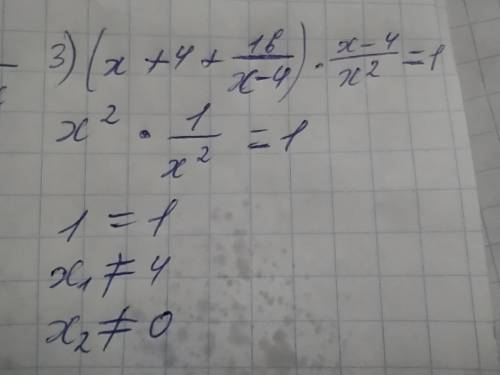 3) (x + 4 + 16/(x-4)) · (x-4)/x² = 1
x² · 1/x² = 1
1 = 1
x₁ ≠ 4
x₂ ≠ 0